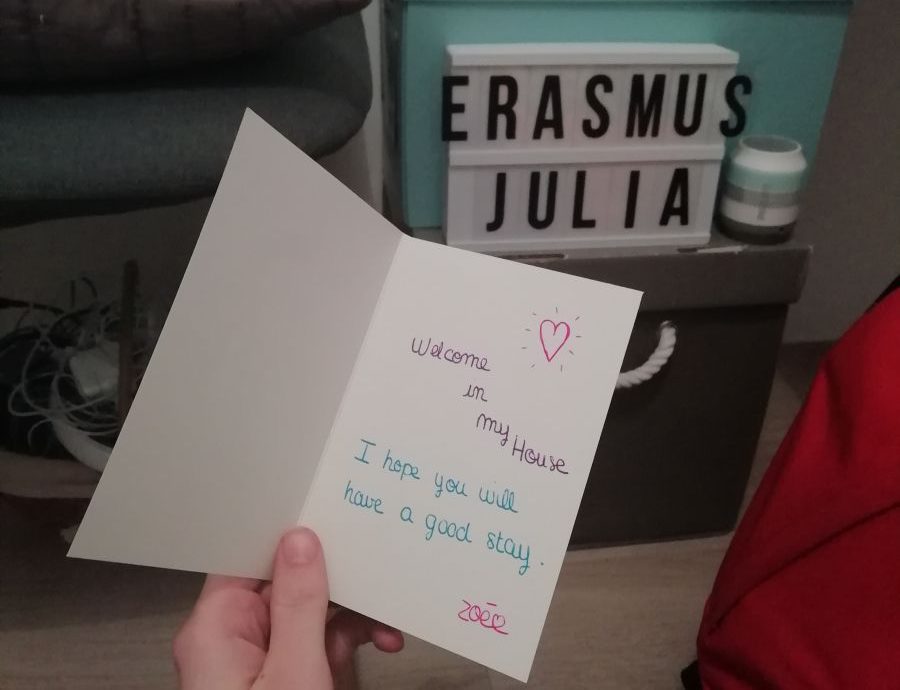 ERASMUS
JULIA
Welcome
in
my House
I hope you will
have a good stay.
Zoée